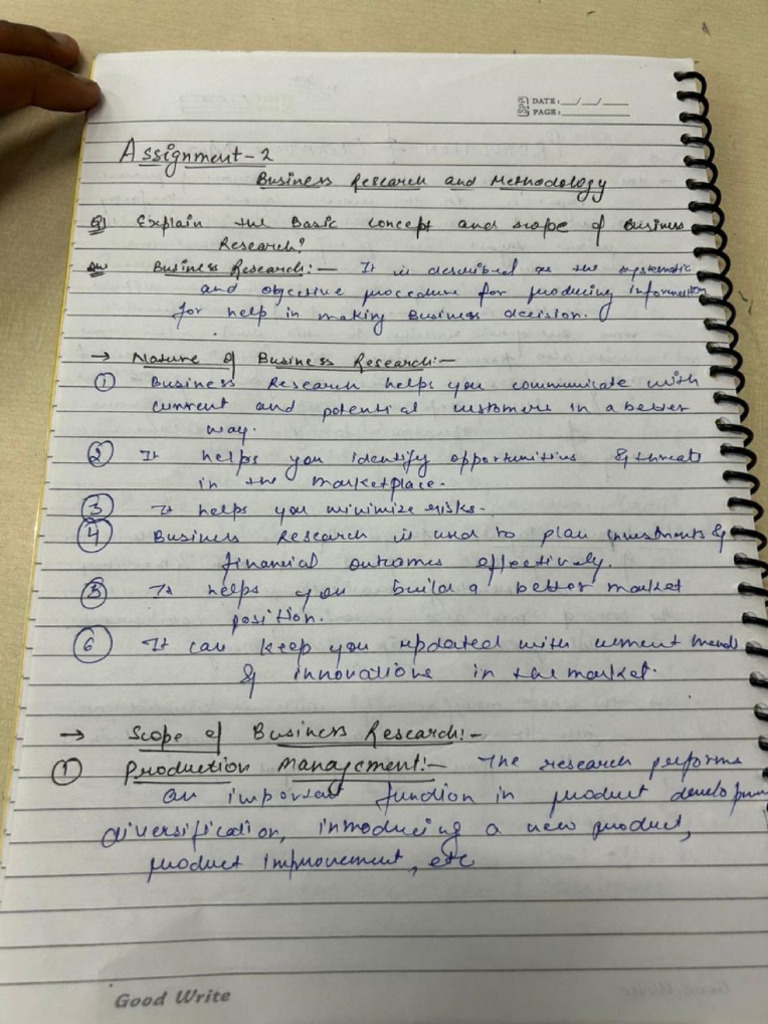 DATE: __/__/__
PAGE: ______
Assignment-2
Business Research and Methodology
Q1 Explain the Basic concept and scope of Business
Research?
Ans Business Research:- It is described as the systematic
and objective procedure for producing information
for help in making Business decision.
→ Nature of Business Research:-
① Business Research helps you communicate with
current and potential customers in a better
way.
② It helps you identify opportunities & threats
in the marketplace.
③ It helps you minimize risks.
④ Business Research is used to plan investments &
financial outcomes effectively.
⑤ It helps you build a better market
position.
⑥ It can keep you updated with current trends
& innovations in the market.
→ Scope of Business Research:-
① Production Management:- The research performs
an important function in product developm
diversification, introducing a new product,
product improvement, etc
Good Write